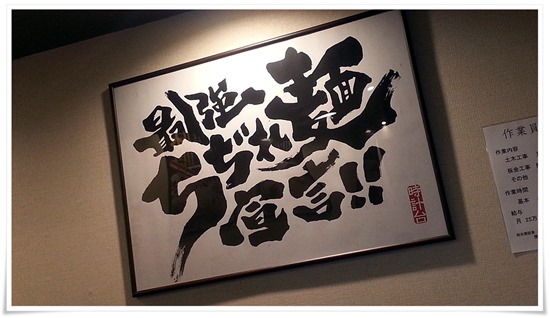 最強
ちぢれ麺
宣言!!
時計台
作業員
作業内容
土木工事
板金工事
その他
作業時間
基本
給与
月 25万